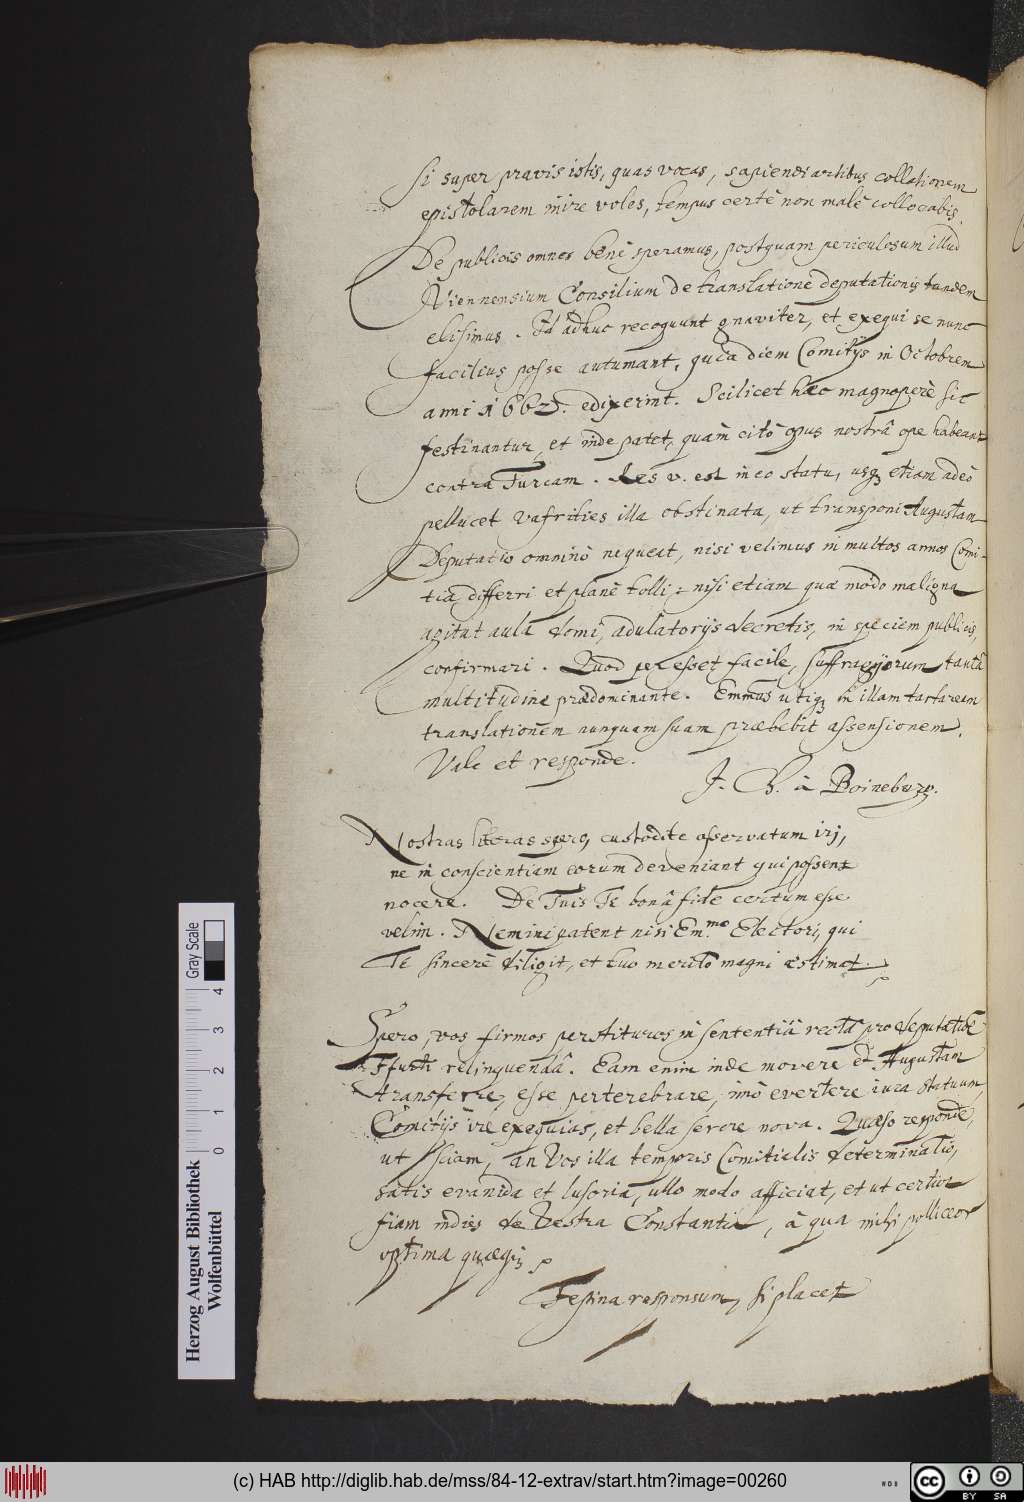 Si super pravis istis, quas vocas, sapiendi artibus collationem
epistolarem mire voles, tempus certè non malè collocabis.
De publicis omnes benè speramus, postquam periculosum illud
Viennensium Consilium de translatione deputationis tandem
elisimus. Id adhuc recoquunt gnaviter, et exequi se nunc
facilius posse autumant, quia diem Comitijs in Octobrem
anni 1662. edixerint. Scilicet haec magnoperè sic
festinantur, et inde patet, quàm citò opus nostrâ ope habeant
contra Turcam. Res v. est in eo statu, usq etiam adeò
pellucet vafrities illa obstinata, ut transponi Augustam
Deputatio omninò nequeat, nisi velimus in multos annos Comi-
tia differri et planè tolli; nisi etiam quae modo maligna
agitat aula domi, adulatorijs decretis, in speciem publicis,
confirmari. Quod esset facile, suffragiorum tantâ
multitudine praedominante. Emmus utiq in illam tartaream
translationem nunquam suam praebebit assensionem.
Vale et responde.
J. Ch. à Boineburg.
Nostras literas spero, custodite asservatum irj,
ne in conscientiam eorum deveniant qui possent
nocere. De Tuis Te bonâ fide certum esse
velim. Nemini patent nisi Em.mo Electori, qui
Te sincerè diligit, et tuo merito magni aestimat.
Spero, vos firmos perstituros in sententiâ rectâ pro deputatione
Ffurti relinquendâ. Eam enim inde movere et Augustam
transferre, esse perterebrare, imò evertere iura Statuum,
Comitijs ire exequias, et bella serere nova. Quaeso responde,
ut sciam, an Vos illa temporis Comitialis determinatio,
satis evanida et lusoria, ullo modo afficiat, et ut certior
fiam indies de Vestra Constantia, à qua mihi polliceor
optima quaeq
Festina responsum, si placet
Herzog August Bibliothek
Wolfenbüttel
0 1 2 3 4
Gray Scale
(c) HAB http://diglib.hab.de/mss/84-12-extrav/start.htm?image=00260
WDB
cc BY SA